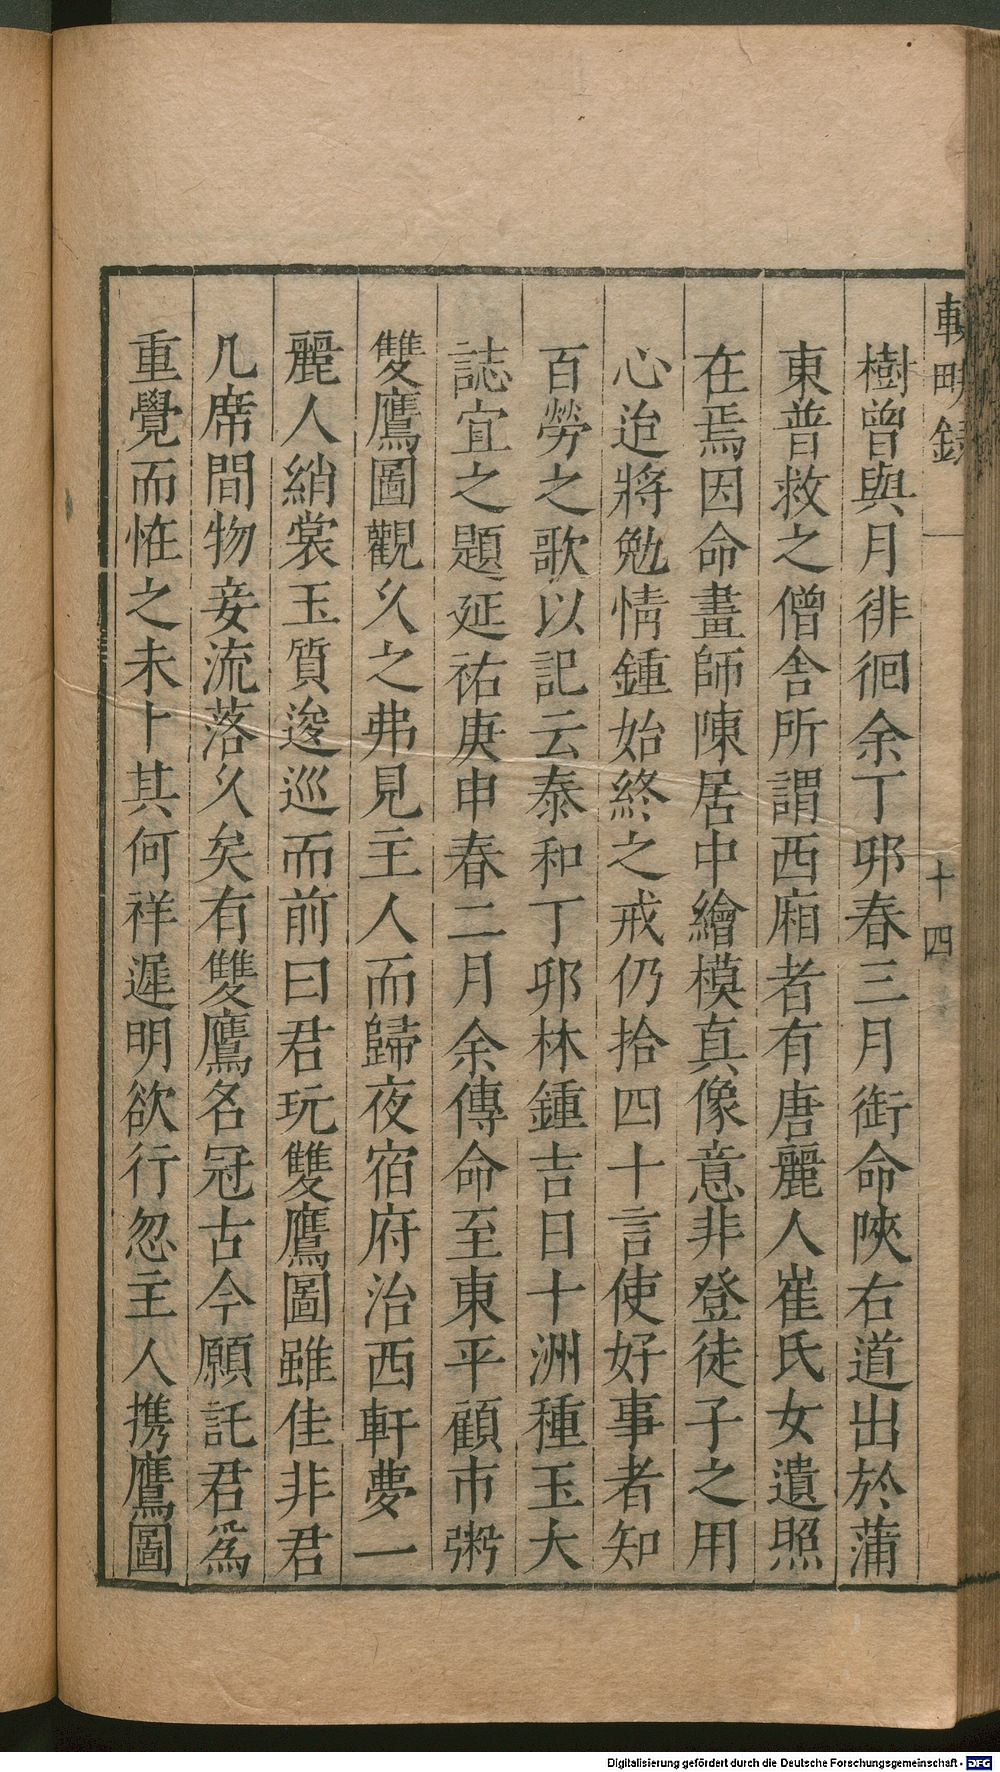 輟畊錄 一 十四
樹曾與月徘徊余丁夘春三月銜命陝右道出於蒲
東普救之僧舍所謂西廂者有唐麗人崔氏女遺照
在焉因命畫師陳居中繪模真像意非登徒子之用
心迨將勉情鍾始終之戒仍拾四十言使好事者知
百勞之歌以記云泰和丁夘林鍾吉日十洲種玉大
誌宜之題延祐庚申春二月余傳命至東平顧市粥
雙鷹圖觀久之弗見主人而歸夜宿府治西軒夢一
麗人綃裳玉質逡巡而前曰君玩雙鷹圖雖佳非君
几席間物妾流落久矣有雙鷹名冠古今願託君爲
重覺而恠之未卜其何祥遲明欲行忽主人携鷹圖
Digitalisierung gefördert durch die Deutsche Forschungsgemeinschaft - DFG